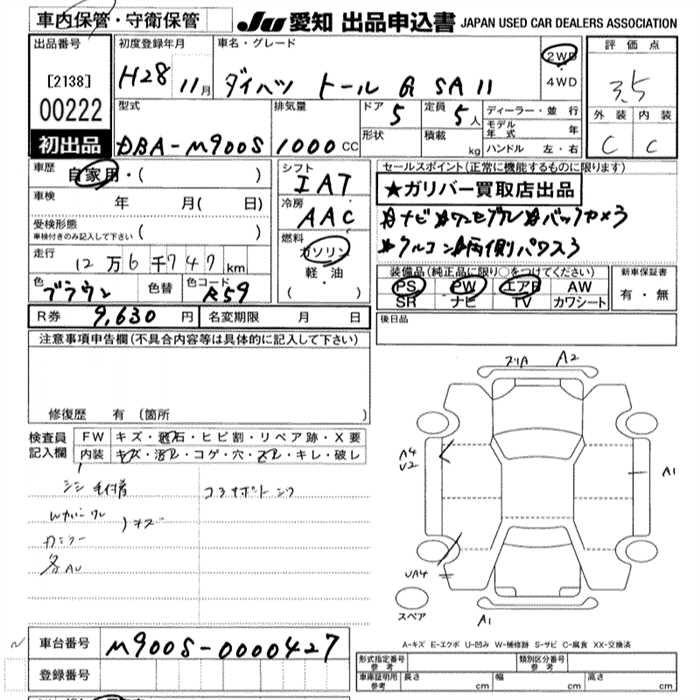 車内保管・守衛保管
JU 愛知 出品申込書 JAPAN USED CAR DEALERS ASSOCIATION
出品番号
[2138]
00222
初出品
初度登録年月
H28 11月
車名・グレード
ダイハツ トール G SA II
2WD
・
4WD
評価点
3.5
外装 内装
C C
型式
DBA-M900S
排気量
1000 CC
ドア
5
定員
5人
形状
積載
kg
ディーラー・並行
モデル年式 年
ハンドル 左・右
車歴
自家用・( )
車検 年 月( 日)
受検形態
車検付きのみ記入して下さい ( )
走行
12万6千747km
色 ブラウン 色替 色コード R59
シフト
IAT
冷房
AAC
燃料
ガソリン
・
軽・油
・( )
セールスポイント(正常に機能するものに限ります)
★ガリバー買取店出品
★ナビ★ワンセグTV★バックカメラ
★アルコン★両側パワスラ
装備品(純正品に限り○をつけてください)
PS PW エアB AW
SR ナビ TV カワシート
新車保証書
有・無
R券 9,630円 名変期限 月 日
後日品
注意事項申告欄(不具合内容等は具体的に記入して下さい)
修復歴 有 (箇所
検査員記入欄
FW キズ・飛石・ヒビ割・リペア跡・X要
内装 キズ・汚レ・コゲ・穴・スレ・キレ・破レ
キズ
各AU
ズリA A2
A4
U2
A1
UA4
スペア
A1
A-キズ E-エクボ U-凹み W-補修跡 S-サビ C-腐食 XX-交換済
車台番号 M900S-0000427
登録番号
形式指定番号
参考
類別区分番号
参考
車庫証明用
参考
長さ cm 幅 cm 高さ cm